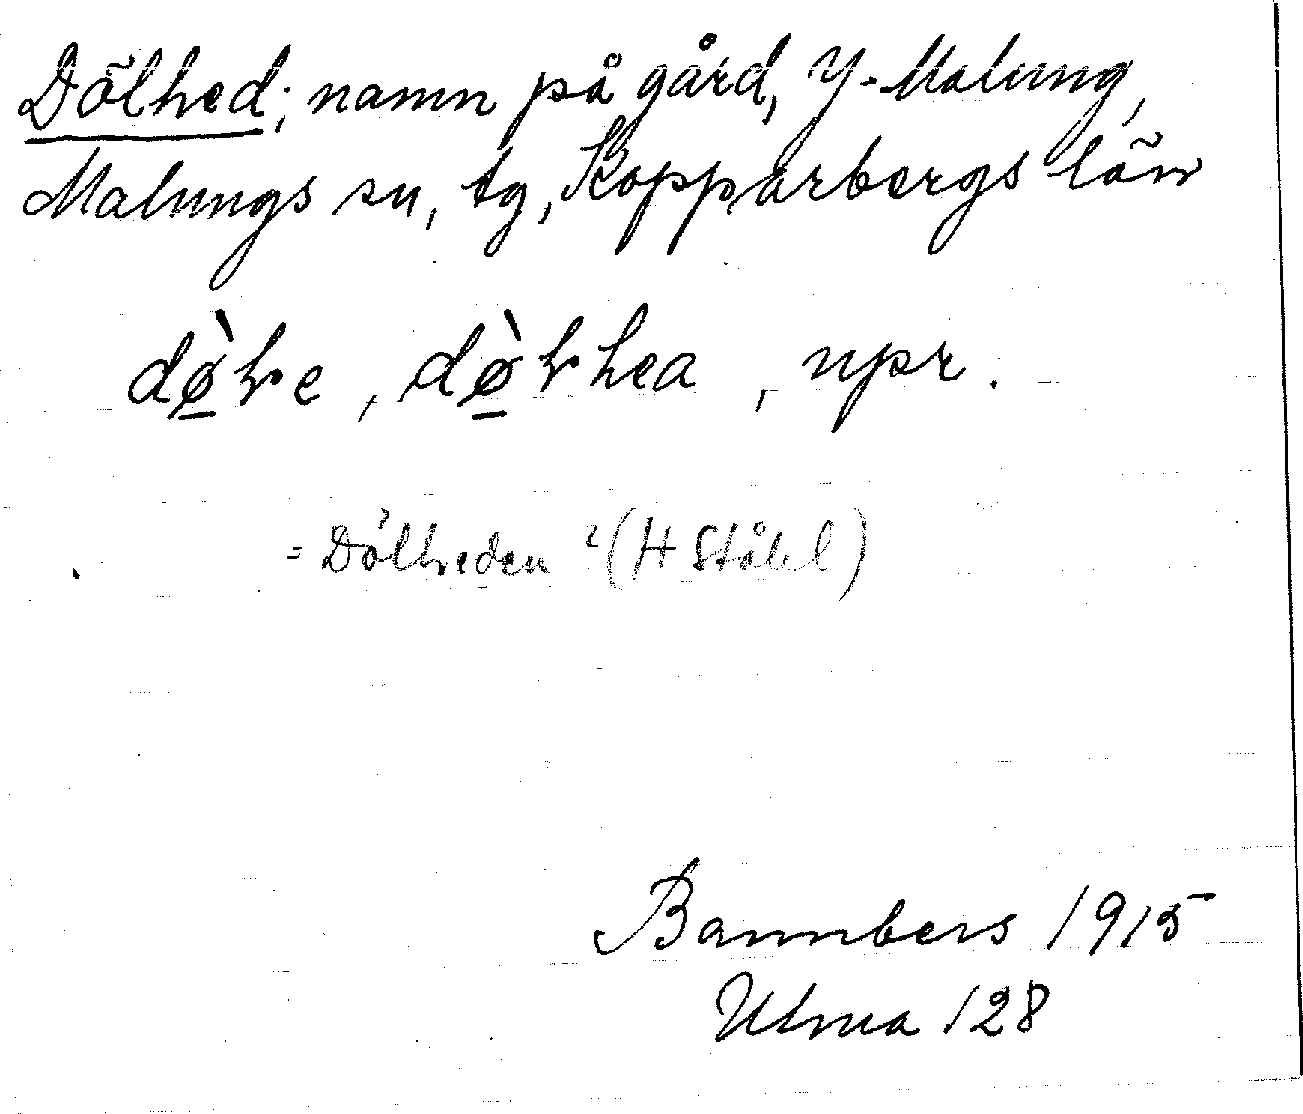 Dölhed; namn på gård, Y-Malung,
Malungs sn, tg, Kopparbergs län
, npr.
= Dölheden ? (H Ståhl)
Bannbers 1915
Ulma 128